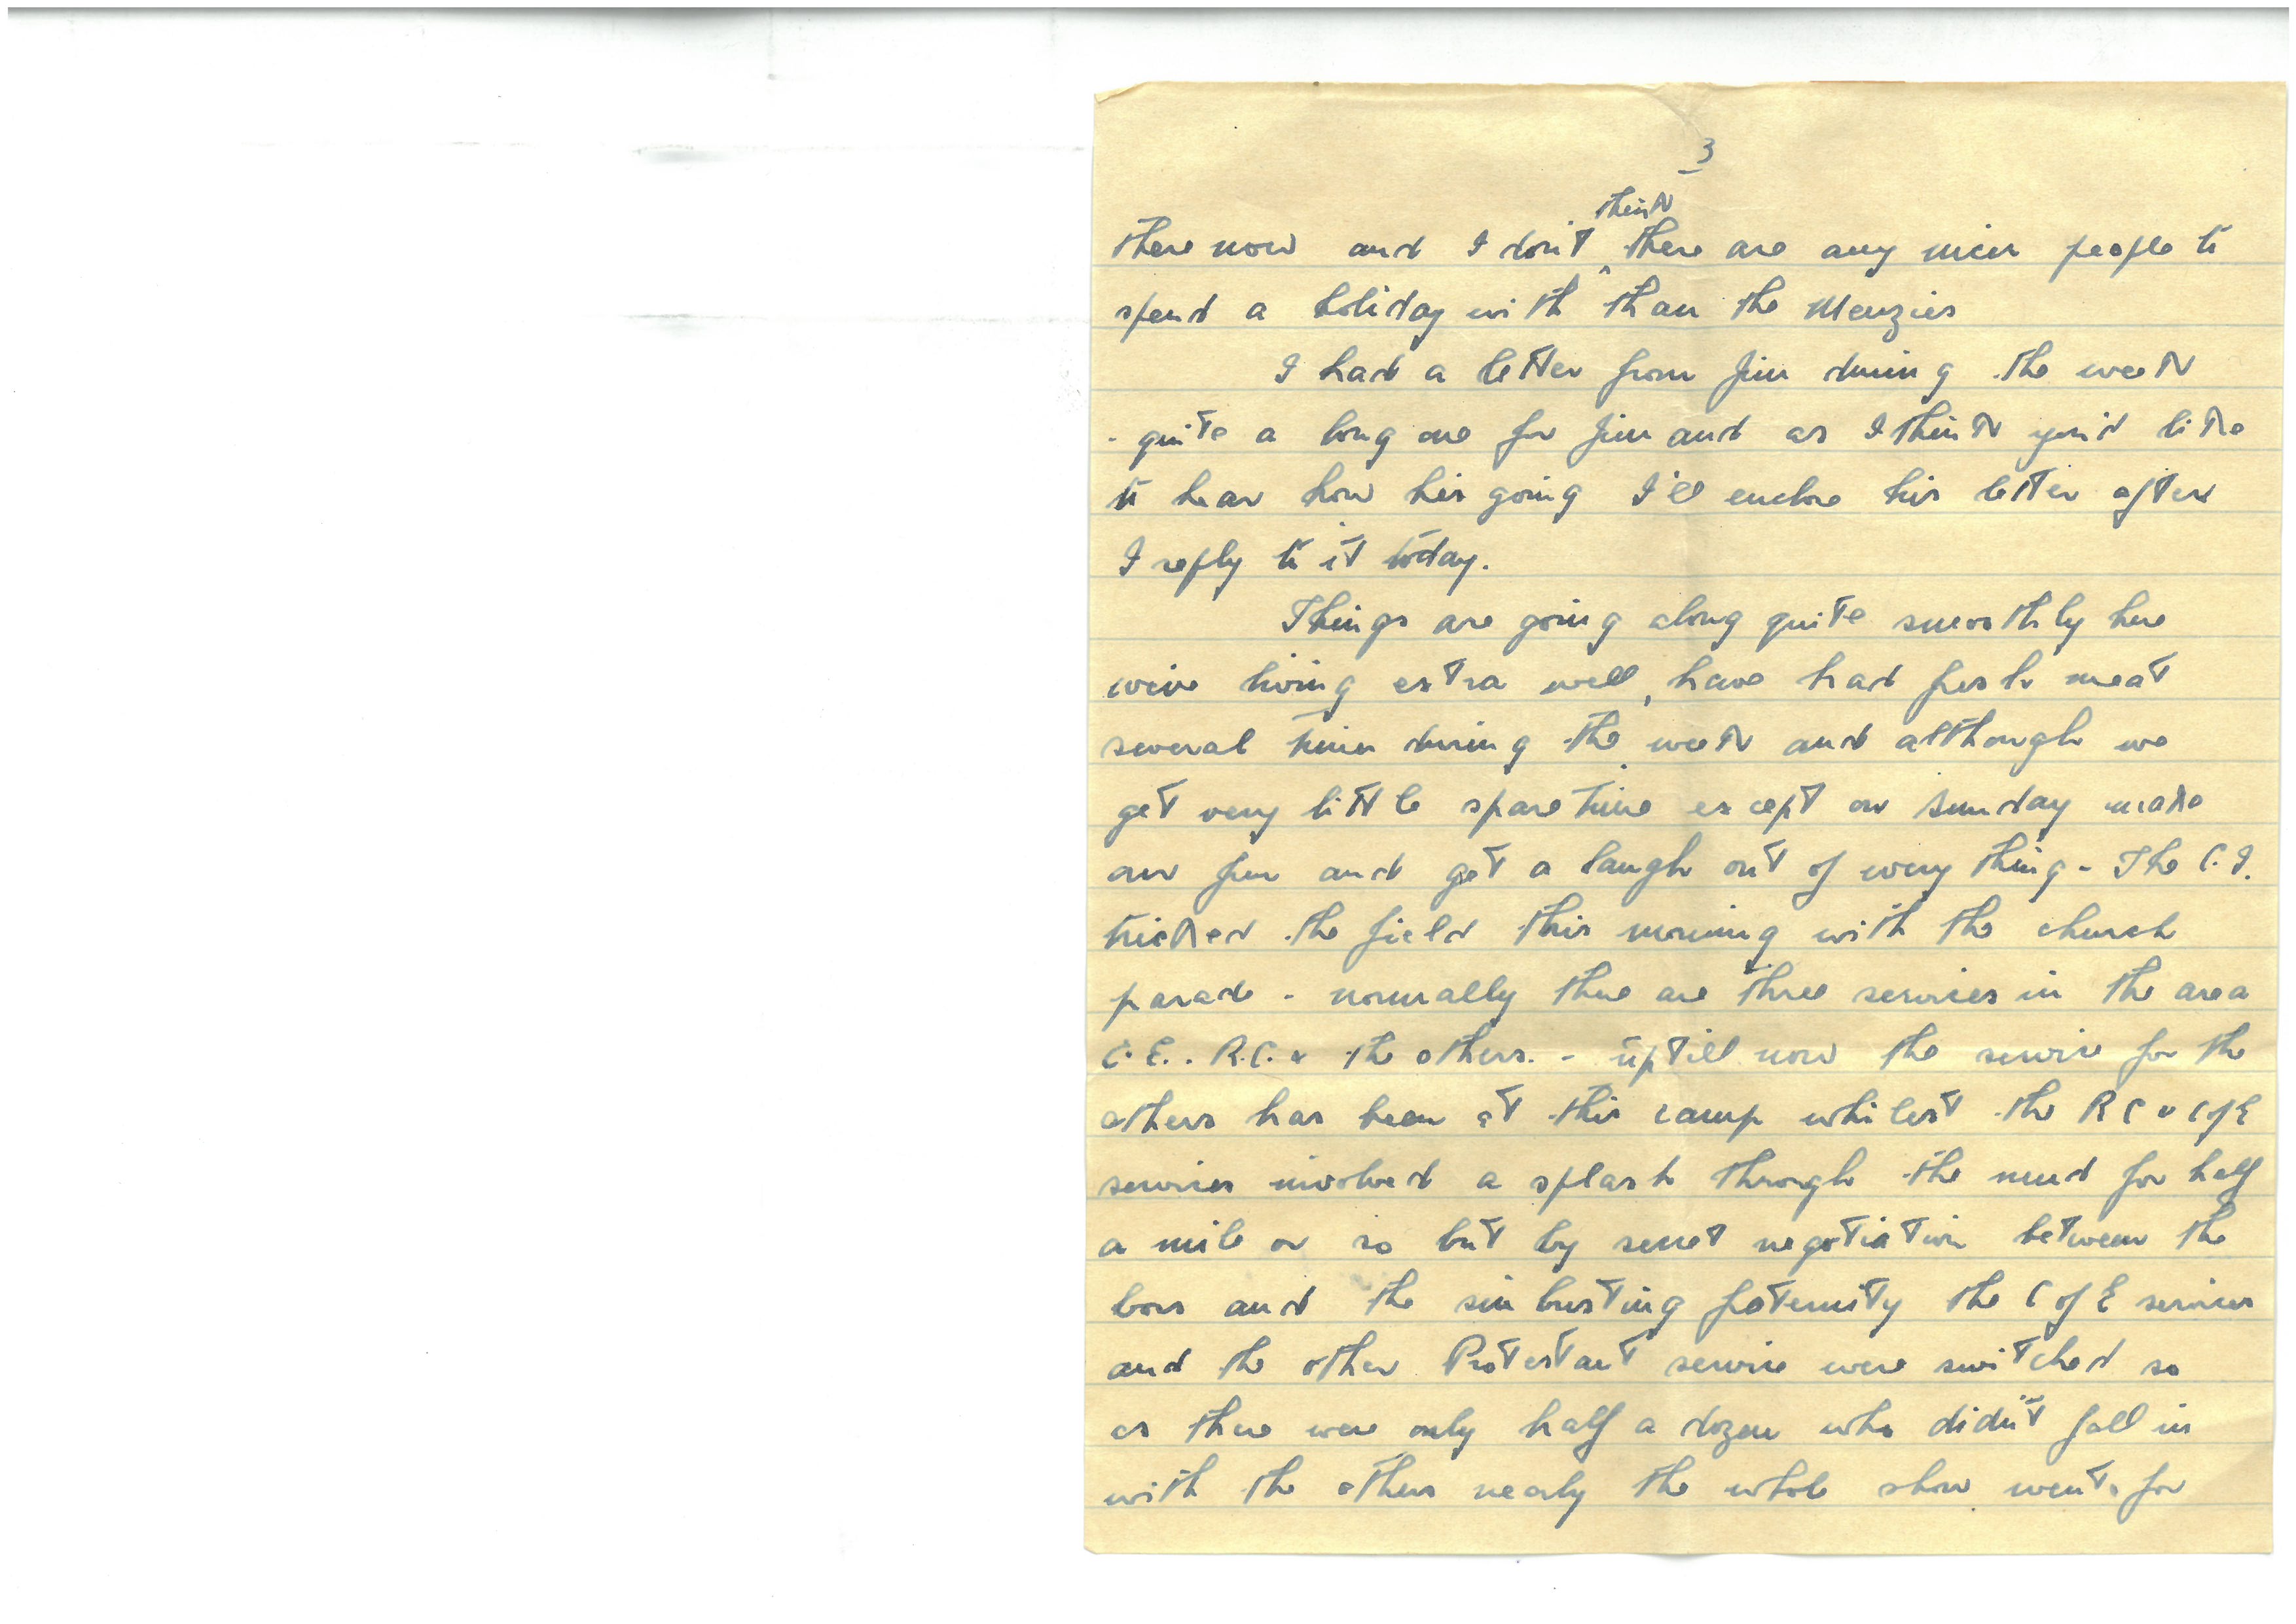 3
think
there now and I don't ^ there are any nicer people to
spend a holiday with than the Menzies
I had a letter from Jim during the week
- quite a long one for Jim and as I think you'd like
to hear how his going I'll enclose his letter after
I reply to it today.
Things are going along quite smoothly here
we're living extra well, have had fresh meat
several times during the week and although we
get very little spare time except on Sunday make
our fun and get a laugh out of every thing - The C.I.
tricked the field this morning with the church
parade - normally there are three services in the area
C.E.. R.C. & the others. - uptill now the service for the
others has been at this camp whilest the R C & C of E
services involved a splash through the mud for half
a mile or so but by secret negotiation between the
boss and the sin busting faternity the C of E services
and the other Protestant service were switched so
as there were only half a dozen who didn't fall in
with the others nearly the whole show went for